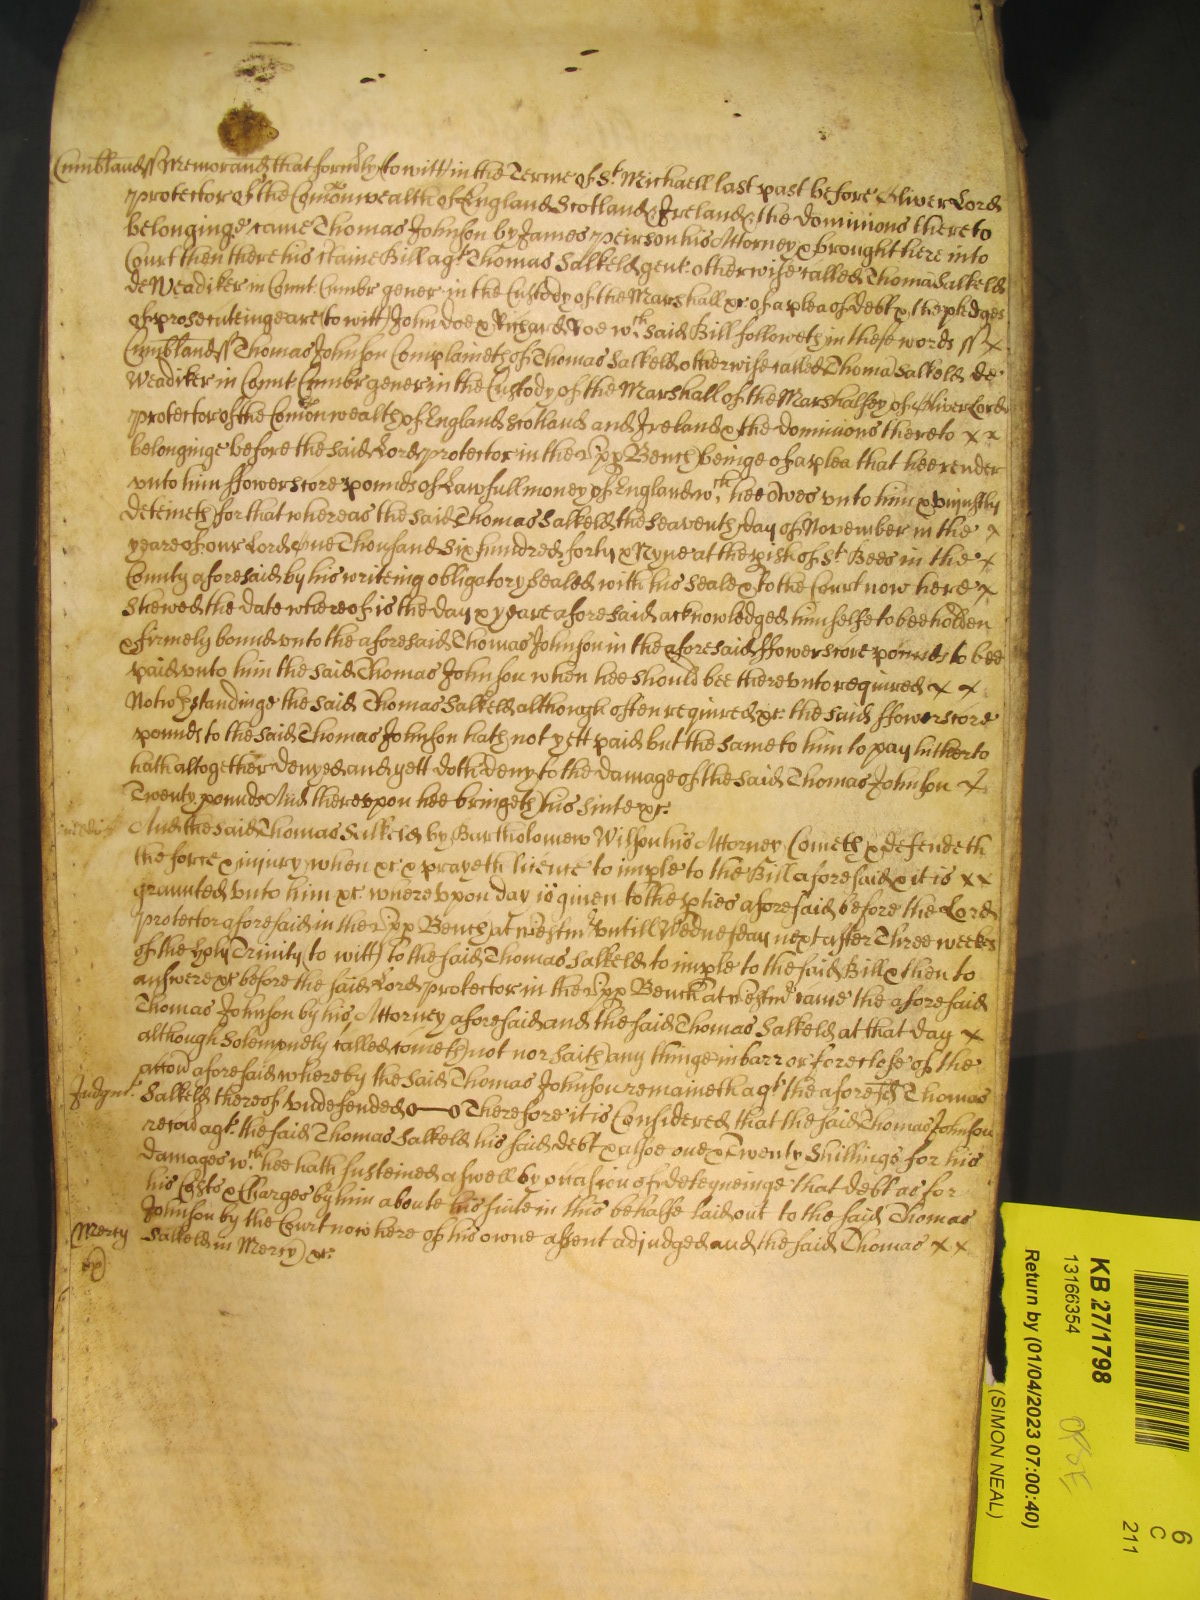 Cumbland ss Memorand that formerly (to witt) in the Terme of St. Michaell last past before Oliver Lord
protector of the Comon wealth of England Scotland & Ireland & the dominions thereto
belonginge came Thomas Johnson by James peirson his Attorney & brought here into
Court then there his certaine Bill agt. Thomas Salkeld gent. otherwise called Thoma Salkeld
de Weadiker in Comt. Cumbr gener in the Custody of the Marshall &c of a plea of debt & the pledges
of prosecuteinge are (to witt) John doe & Richard Roe wch. said Bill followeth in these words ss x
Cumbland ss Thomas Johnson Complaineth of Thomas Salkeld otherwise called Thoma Salkeld de
Weadiker in Comt. Cumbr gener in the Custody of the Marshall of the Marshalsey of Oliver Lord
protector of the Comon wealth of England Scotland and Ireland & the dominions thereto x x
belonginge before the said Lord protector in the upp Bench beinge of a plea that hee render
vnto him ffowerscore pounds of Lawfull money of England wch. hee owes vnto him & vniustly
deteineth for that whereas the said Thomas Salkeld the seaventh day of November in the x
yeare of our Lord One Thousand Six hundred forty & Nyne at the pish of St. Bees in the x
County aforesaid by his writeing obligatory sealed with his seale & to the Court now here x
shewed the date whereof is the day & yeare aforesaid acknowledged himselfe to bee holden
& firmely bound vnto the aforesaid Thomas Johnson in the aforesaid ffowerscore pounds to bee
paid vnto him the said Thomas Johnson when hee should bee therevnto required x x
Notwthstandinge the said Thomas Salkeld although often required &c. the said ffowerscore
pounds to the said Thomas Johnson hath not yett paid but the same to him to pay hitherto
hath altogether denyed and yett doth deny to the damage of the said Thomas Johnson x
Twenty pounds And therevpon hee bringeth his suite &c.
And the said Thomas Salkeld by Bartholomew Wilson his Attorney Cometh & defendeth
the force & injury when &c & prayeth licence to imple to the Bill aforesaid & it is x x
graunted vnto him &c. wherevpon day is given to the pties aforesaid before the Lord
protector aforesaid in the upp Bench at Westmr vntill Wednesday next after Three weekes
of the holy Trinity (to witt) to the said Thomas Salkeld to imple to the said Bill & then to
answere &c before the said Lord protector in the upp Bench at Westmr came the aforesaid
Thomas Johnson by his Attorney aforesaid and the said Thomas Salkeld at that day x
although Solempnely called cometh not nor saith any thinge in barr or foreclose of the
accon aforesaid whereby the said Thomas Johnson remaineth agt. the aforesd Thomas
Judgmt. Salkeld thereof vndefended Therefore it is Considered that the said Thomas Johnson
recov agt. the said Thomas Salkeld his said debt & alsoe one & Twenty Shillings for his
damages wch. hee hath susteined aswell by occasion of deteyneinge that debt as for
his Costs & Charges by him aboute his suite in this behalfe laid out to the said Thomas
Johnson by the Court now here of his owne assent adjudged and the said Thomas x x
Mercy Salkeld in Mercy &c.
KB 27/1798
13166354
Return by (01/04/2023 07:00:40)
(SIMON NEAL)
6
C
211